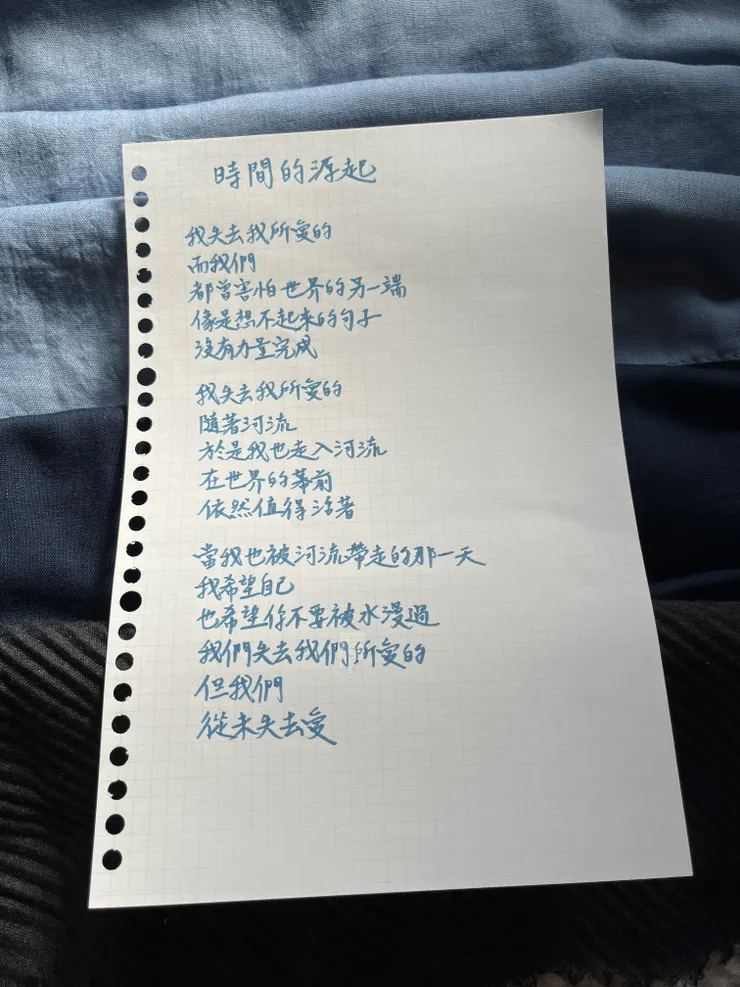 時間的源起
我失去我所愛的
而我們
都曾害怕世界的另一端
像是想不起來的句子
沒有力量完成
我失去我所愛的
隨著河流
於是我也走入河流
在世界的幕前
依然值得活著
當我也被河流帶走的那一天
我希望自己
也希望你不要被水漫過
我們失去我們所愛的
但我們
從未失去愛